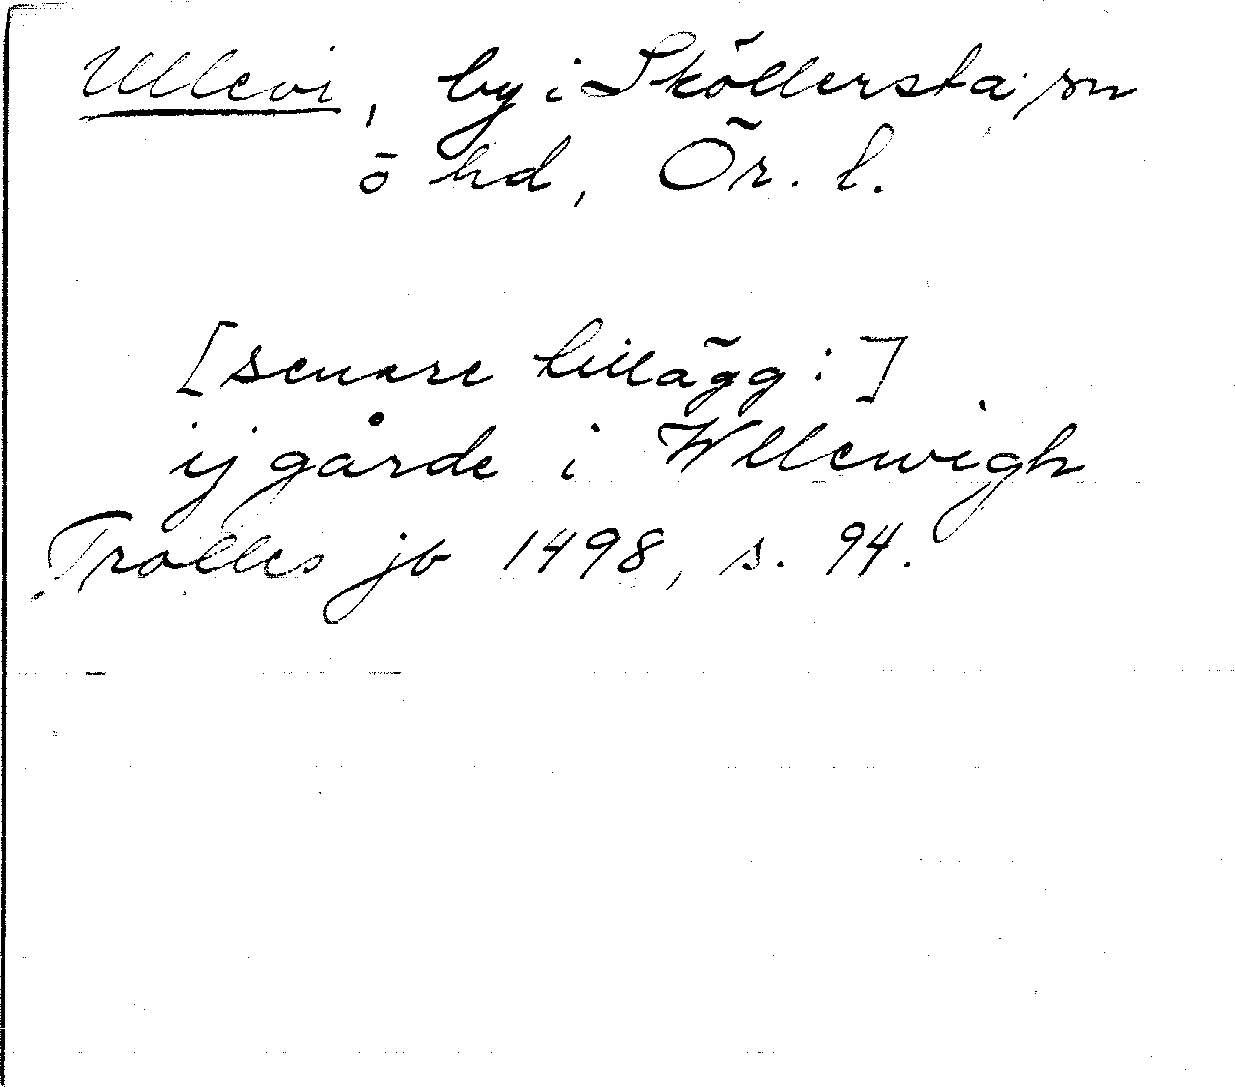 Ullevi, by i Sköllersta sn
ö hd, Ör. l.
[senare tillägg:]
ij gårde i Wllewigh
Trolles jb 1498, s. 94.